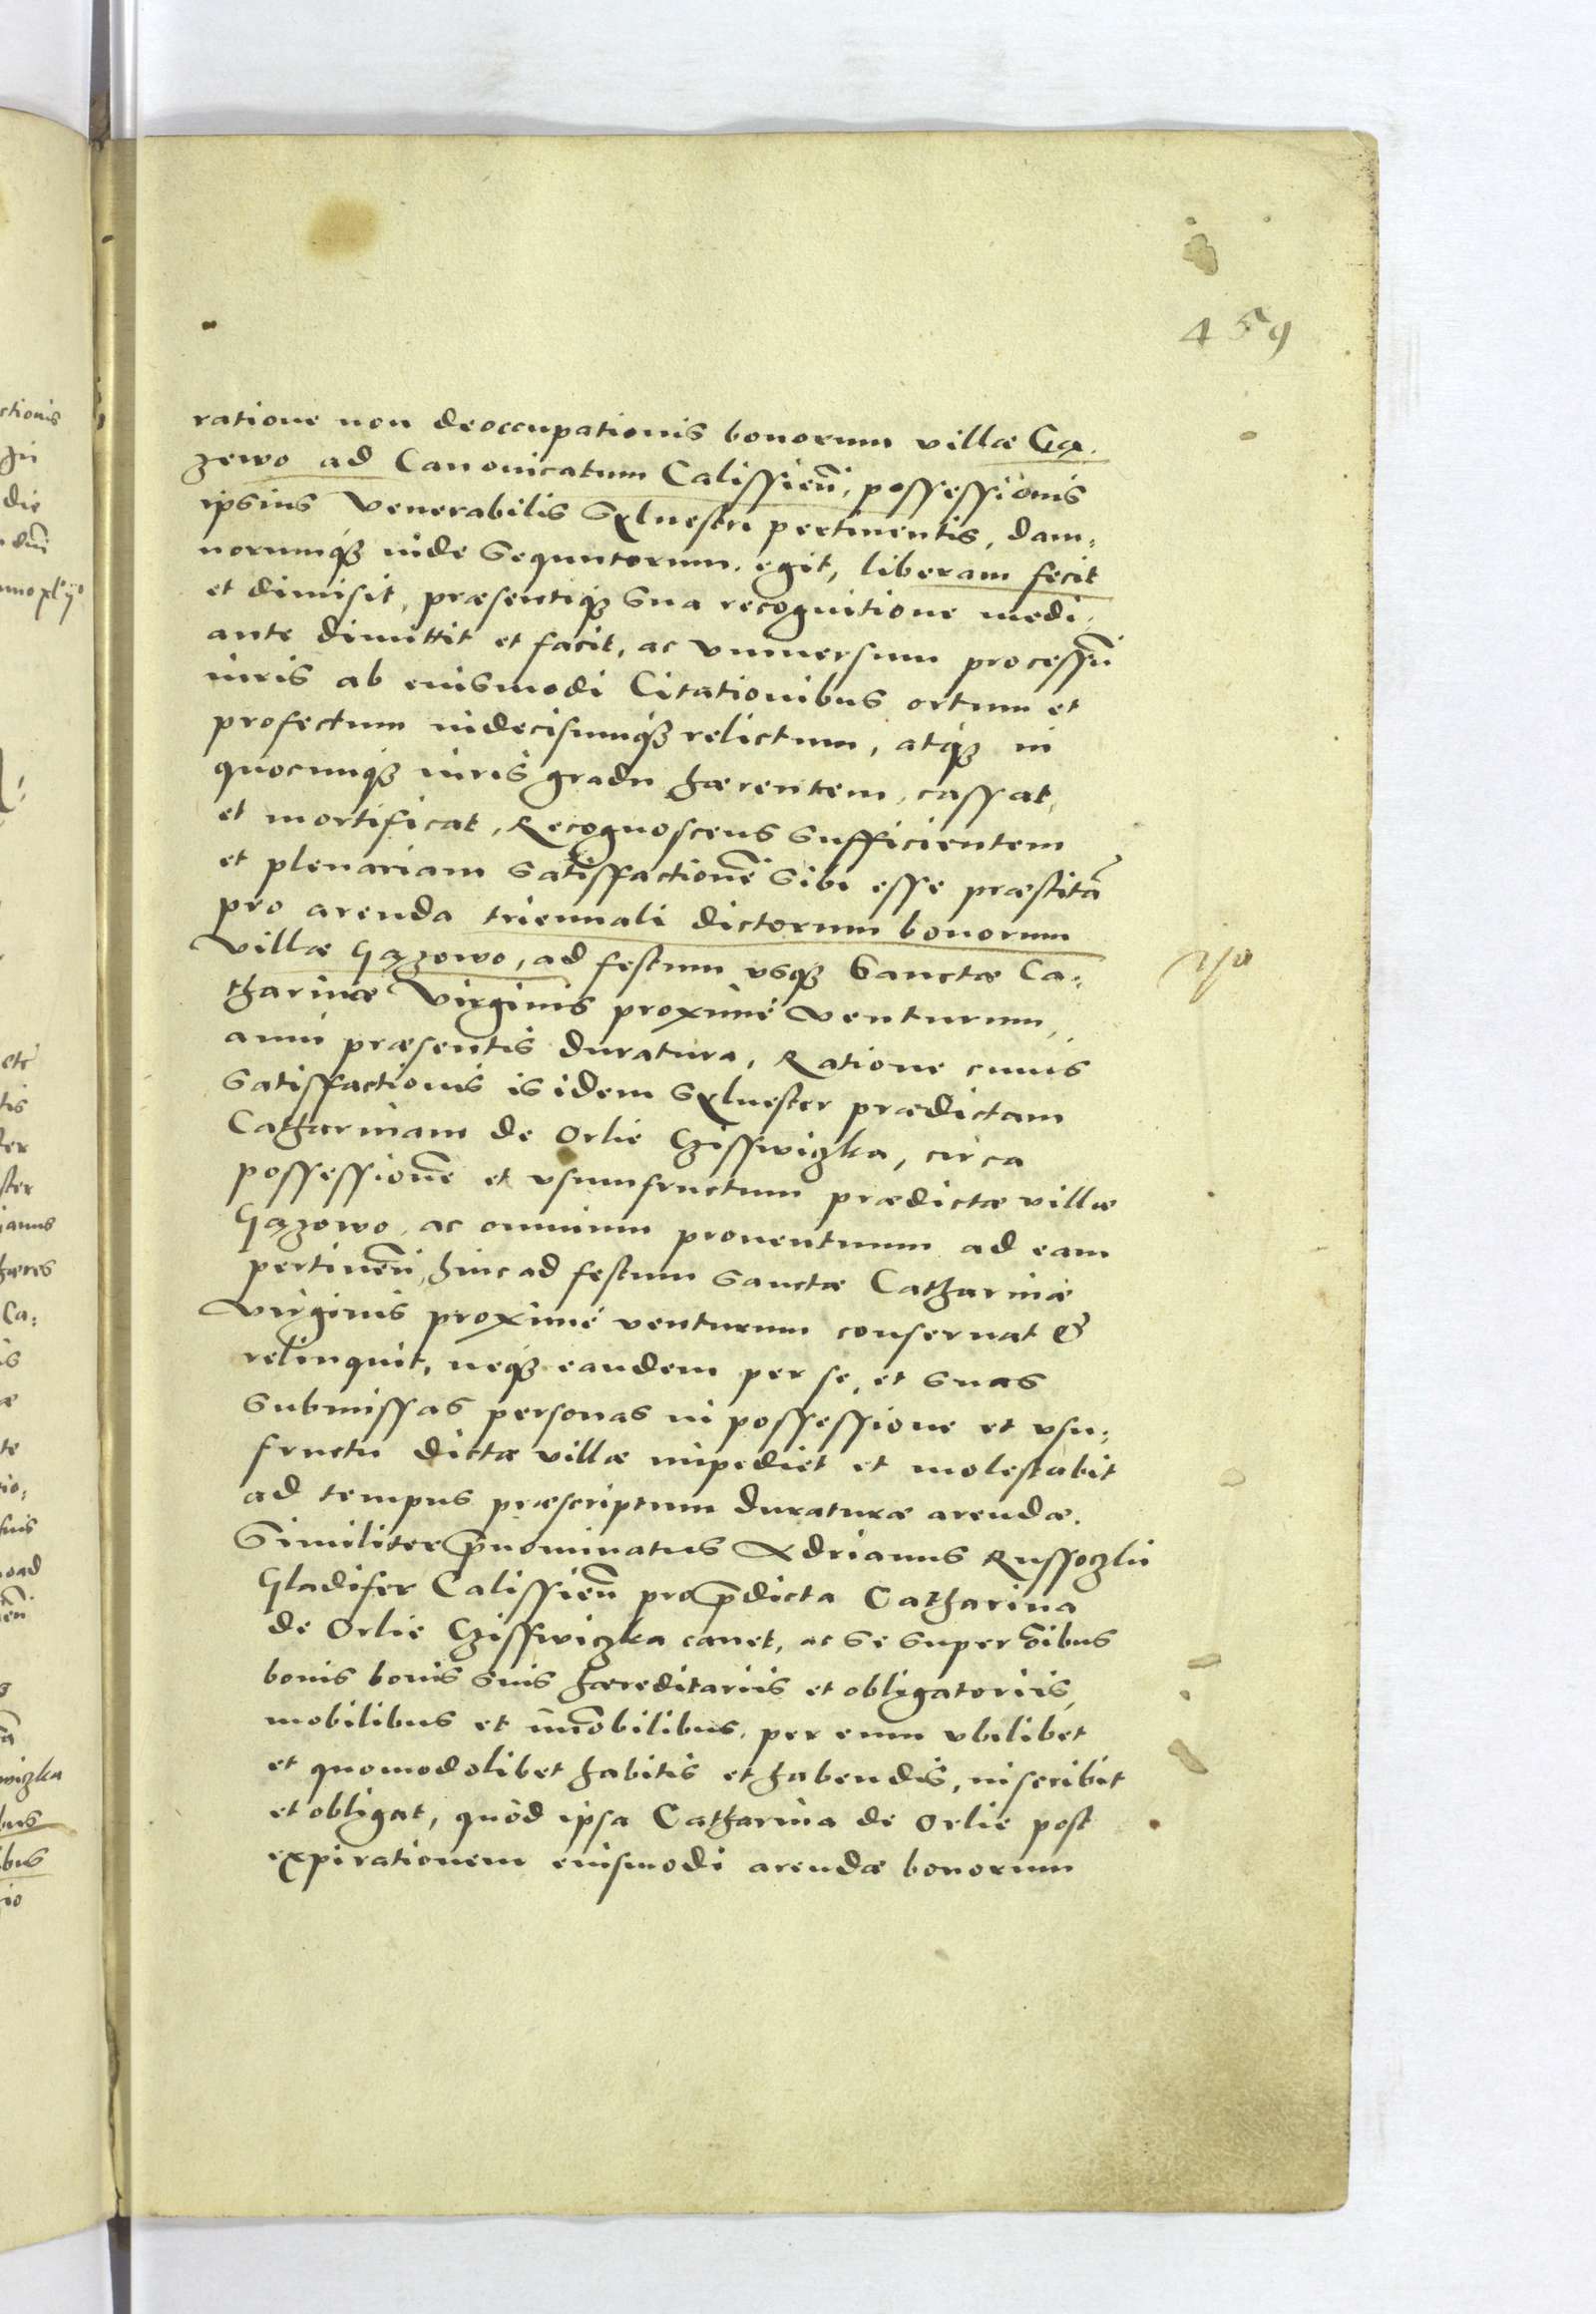 459
ratione non deoccupationis bonorum villæ Ga,
zewo ad Canonicatum Calissien̄, possessionis
ipsius Venerabilis Syluestri pertinentis, dam,
norumq₃ inde sequutorum, egit, liberam fecit
et dimisit, præsentiq₃ sua recognitione medi,
ante dimittit et facit, ac vniuersum processū
iuris ab eiusmodi Citationibus ortum et
profectum indecisumq₃ relictum, atq₃ in
quocunq₃ iuris gradu hærentem, cassat,
et mortificat, Recognoscens sufficientem
et plenariam satisfactionē sibi esse præstitā
pro arenda triennali dictorum bonorum
villæ Gazowo, ad festum vsq₃ Sanctæ Ca,
tharinæ Virginis proximé venturum,
anni præsentis duratura, Ratione cuius
satisfactionis is idem Syluester prædictam
Catharinam de Orlie Czisswiczka, circa
possessionē et vsumfructum prædictæ villæ
Gazowo, ac omnium prouentuum ad eam
pertinen̄, hinc ad festum sanctæ Catharinæ
Virginis proximé venturum conseruat &
relinquit, neq₃ eandem per se, et suas
submissas personas in possessione et vsu,
fructu dictæ villæ impediet et molestabit
ad tempus præscriptum duraturæ arendæ.
Similiter p̄nominatus Adrianus Russoczki
Gladifer Calissien̄ pro p̄dicta Catharina
de Orlie Cziswiczka cauet, ac se super oībus
bonis bonis suis hæreditariis et obligatoriis,
mobilibus et im̄obilibus, per eum vbilibet
et quomodolibet habitis et habendis, inscribit
et obligat, quód ipsa Catharina de Orlie post
expirationem eiusmodi arendæ bonorum